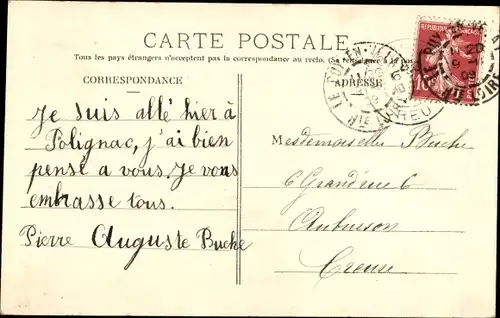 CARTE POSTALE
Tous les pays étrangers n'acceptent pas la correspondance au recto. (Se renseigner à la Poste)
CORRESPONDANCE
ADRESSE
10
Je suis allé hier à
Polignac, j'ai bien
pensé a vous. Je vous
embrasse tous.
Pierre Auguste Buche
Mesdemoiselles Buche
6 Grand'rue 6
Aubusson
Creuse
LE PUY-EN-VELAY
HTE LOIRE